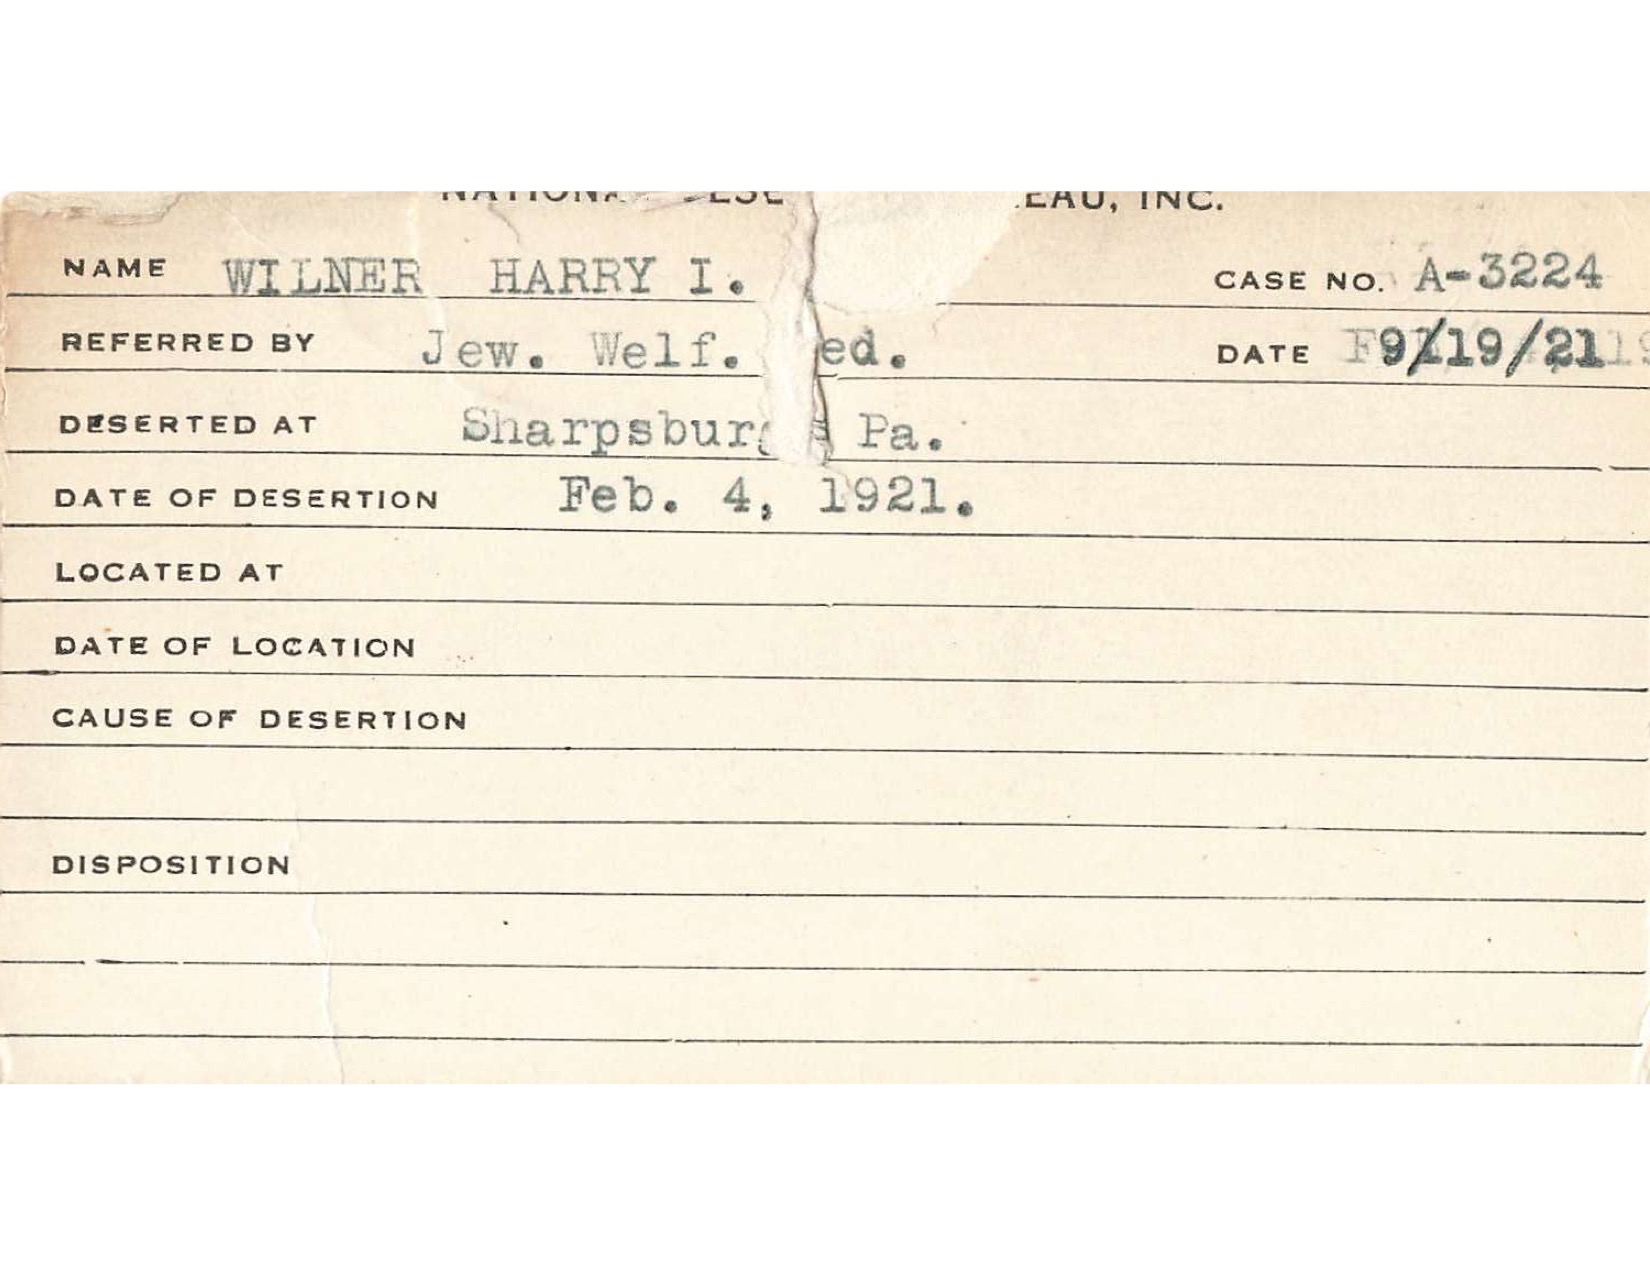 NATIONAL DESE EAU, INC.
NAME WILNER HARRY I. CASE NO. A-3224
REFERRED BY Jew. Welf. ed. DATE 9/19/21
DESERTED AT Sharpsburg Pa.
DATE OF DESERTION Feb. 4, 1921.
LOCATED AT
DATE OF LOCATION
CAUSE OF DESERTION
DISPOSITION